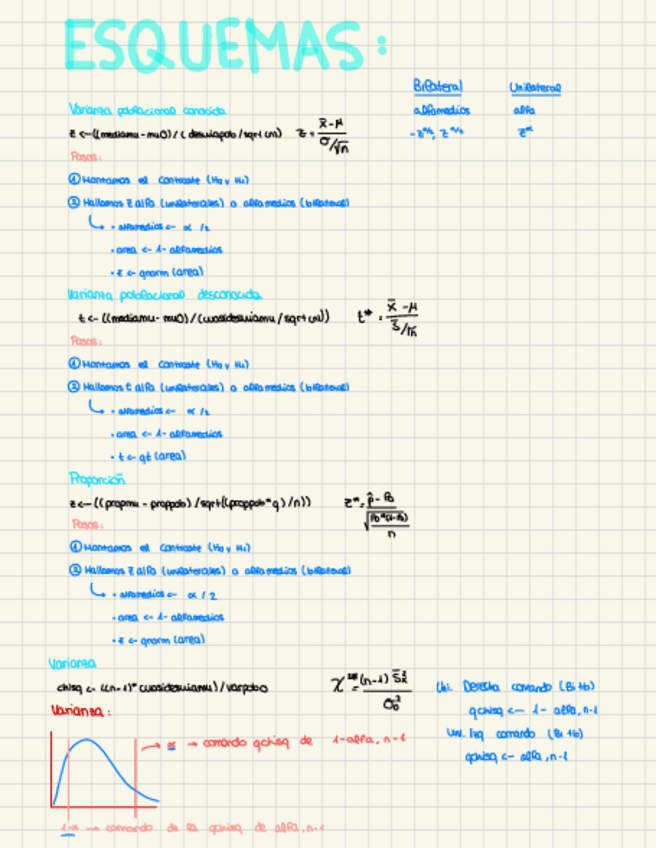 ESQUEMAS:
Bilateral Unilateral
Varianza poblacional conocida alfamedios alfa
z <- ((mediamu - mu0) / (desviapob / sqrt(n)) z = x̄ - μ / σ/√n -z^α/2, z^α/2 z^α
Pasos:
① Montamos el contraste (H0 y H1)
② Hallamos z alfa (unilaterales) o alfamedios (bilateral)
• alfamedios <- α /2
• area <- 1 - alfamedios
• z <- qnorm (area)
Varianza poblacional desconocida
t <- ((mediamu - mu0) / (cuasidesviamu / sqrt(n)) t* = x̄ - μ / s̄/√n
Pasos:
① Montamos el contraste (H0 y H1)
② Hallamos t alfa (unilaterales) o alfamedios (bilateral)
• alfamedios <- α /2
• area <- 1 - alfamedios
• t <- qt (area)
Proporción
z <- ((propmu - proppob) / sqrt((proppob * q) / n)) z* = p̂ - P0 / √P0*(1-P0) / n
Pasos:
① Montamos el contraste (H0 y H1)
② Hallamos z alfa (unilaterales) o alfamedios (bilateral)
• alfamedios <- α / 2
• area <- 1 - alfamedios
• z <- qnorm (area)
Varianza
chisq <- ((n-1) * cuasidesviamu) / varpob χ²* = (n-1) · s̄² / σ0² Uni. Derecha comando (Bi tb)
Varianza: qchisq <- 1 - alfa, n-1
Uni. Izq comando (Bi tb)
qchisq <- alfa, n-1
α → comando qchisq de 1-alfa, n-1
1-α → comando de la qchisq de alfa, n-1